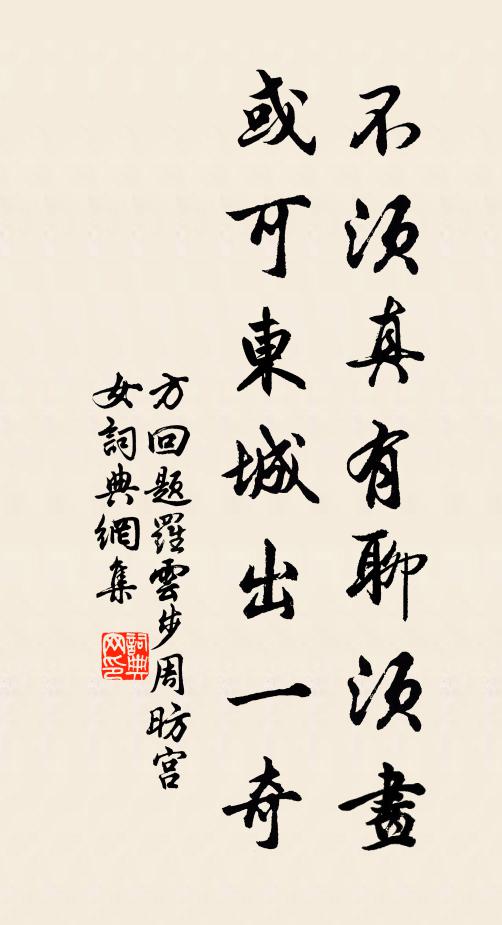 不須真有聊須畫
或可東城出一奇
方回题羅雲步周昉宫
女詞典網集
詞典网印